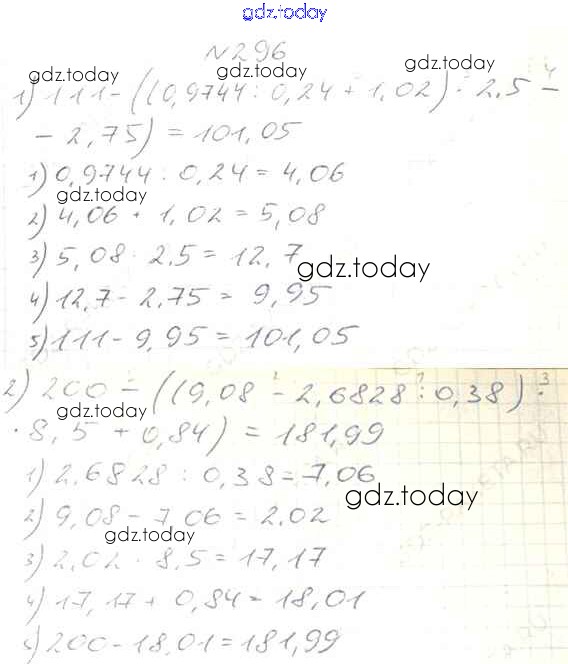 gdz.today
№296
gdz.today gdz.today gdz.today
1) 111-((0,9744 : 0,24 + 1,02) · 2,5 -
- 2,75) = 101,05
1) 0,9744 : 0,24 = 4,06
gdz.today
2) 4,06 + 1,02 = 5,08
3) 5,08 · 2,5 = 12,7
gdz.today
4) 12,7 - 2,75 = 9,95
5) 111 - 9,95 = 101,05
2) 200 - ((9,08 - 2,6828 : 0,38) ·
gdz.today
· 8,5 + 0,84) = 181,99
1) 2,6828 : 0,38 = 7,06
gdz.today
2) 9,08 - 7,06 = 2,02
gdz.today
3) 2,02 · 8,5 = 17,17
4) 17,17 + 0,84 = 18,01
5) 200 - 18,01 = 181,99